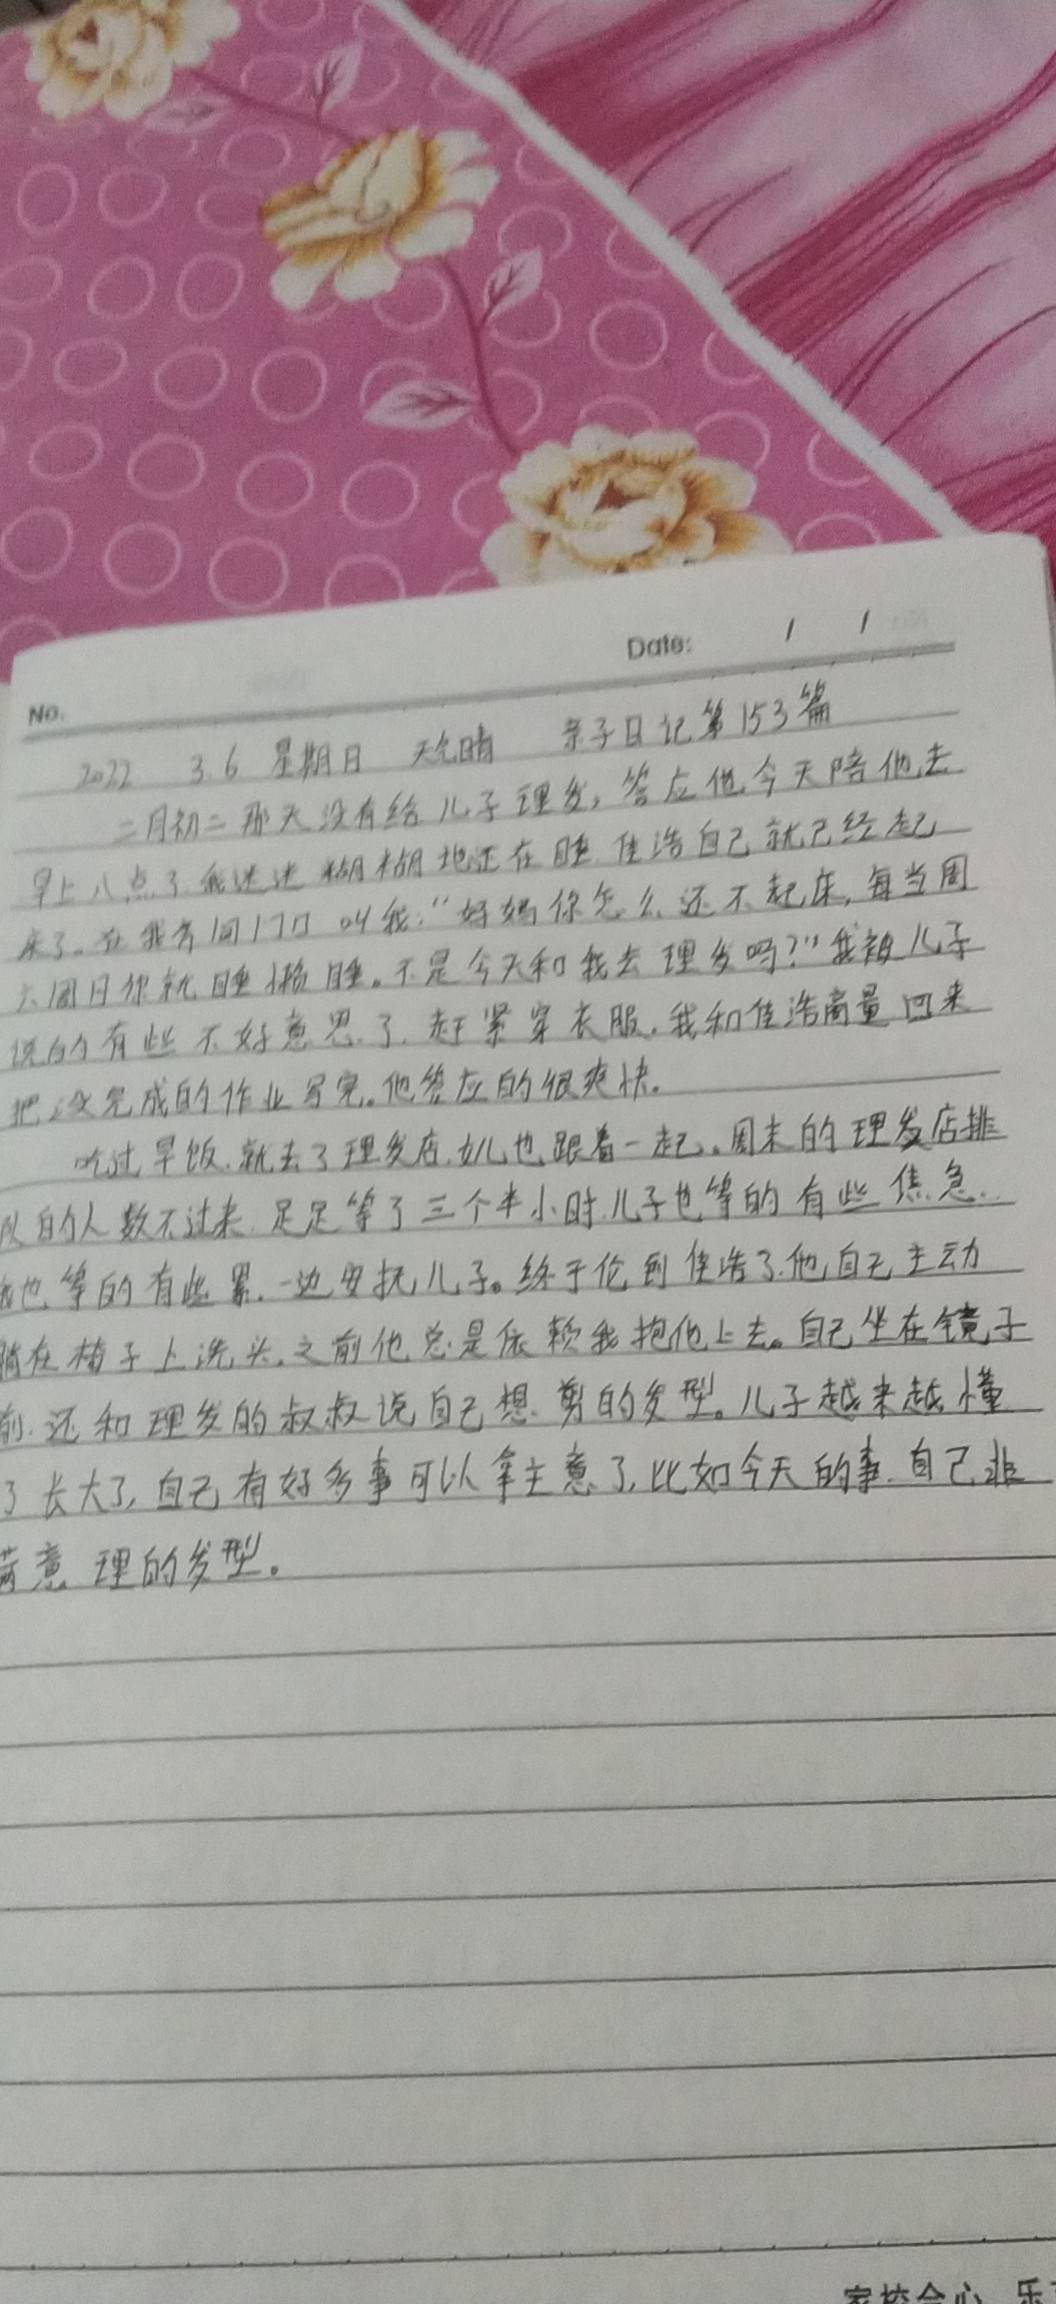 Date: / /
No.
2022 3.6 星期日 天气晴 亲子日记第153篇
二月初二那天没有给儿子理发,答应他今天陪他去
早上八点了.我迷迷糊糊地还在睡.佳浩自己就已经起
床了。在我房间门口叫我:“妈妈你怎么还不起床,每当周
六周日你就睡懒睡。不是今天和我去理发吗?”我被儿子
说的有些不好意思了.赶紧穿衣服.我和佳浩商量回来
把没完成的作业写完。他答应的很爽快.
吃过早饭.就去了理发店.女儿也跟着一起.周末的理发店排
队的人数不过来.足足等了三个半小时.儿子也等的有些焦急..
我也等的有些累.一边安抚儿子。终于伦到佳浩了.他自己主动
躺在椅子上洗头.之前他总是依赖我抱他上去。自己坐在镜子
前.还和理发的叔叔说自己想剪的发型。儿子越来越懂
了长大了,自己有好多事可以拿主意了,比如今天的事.自己非
满意理的发型。
家校合心 乐